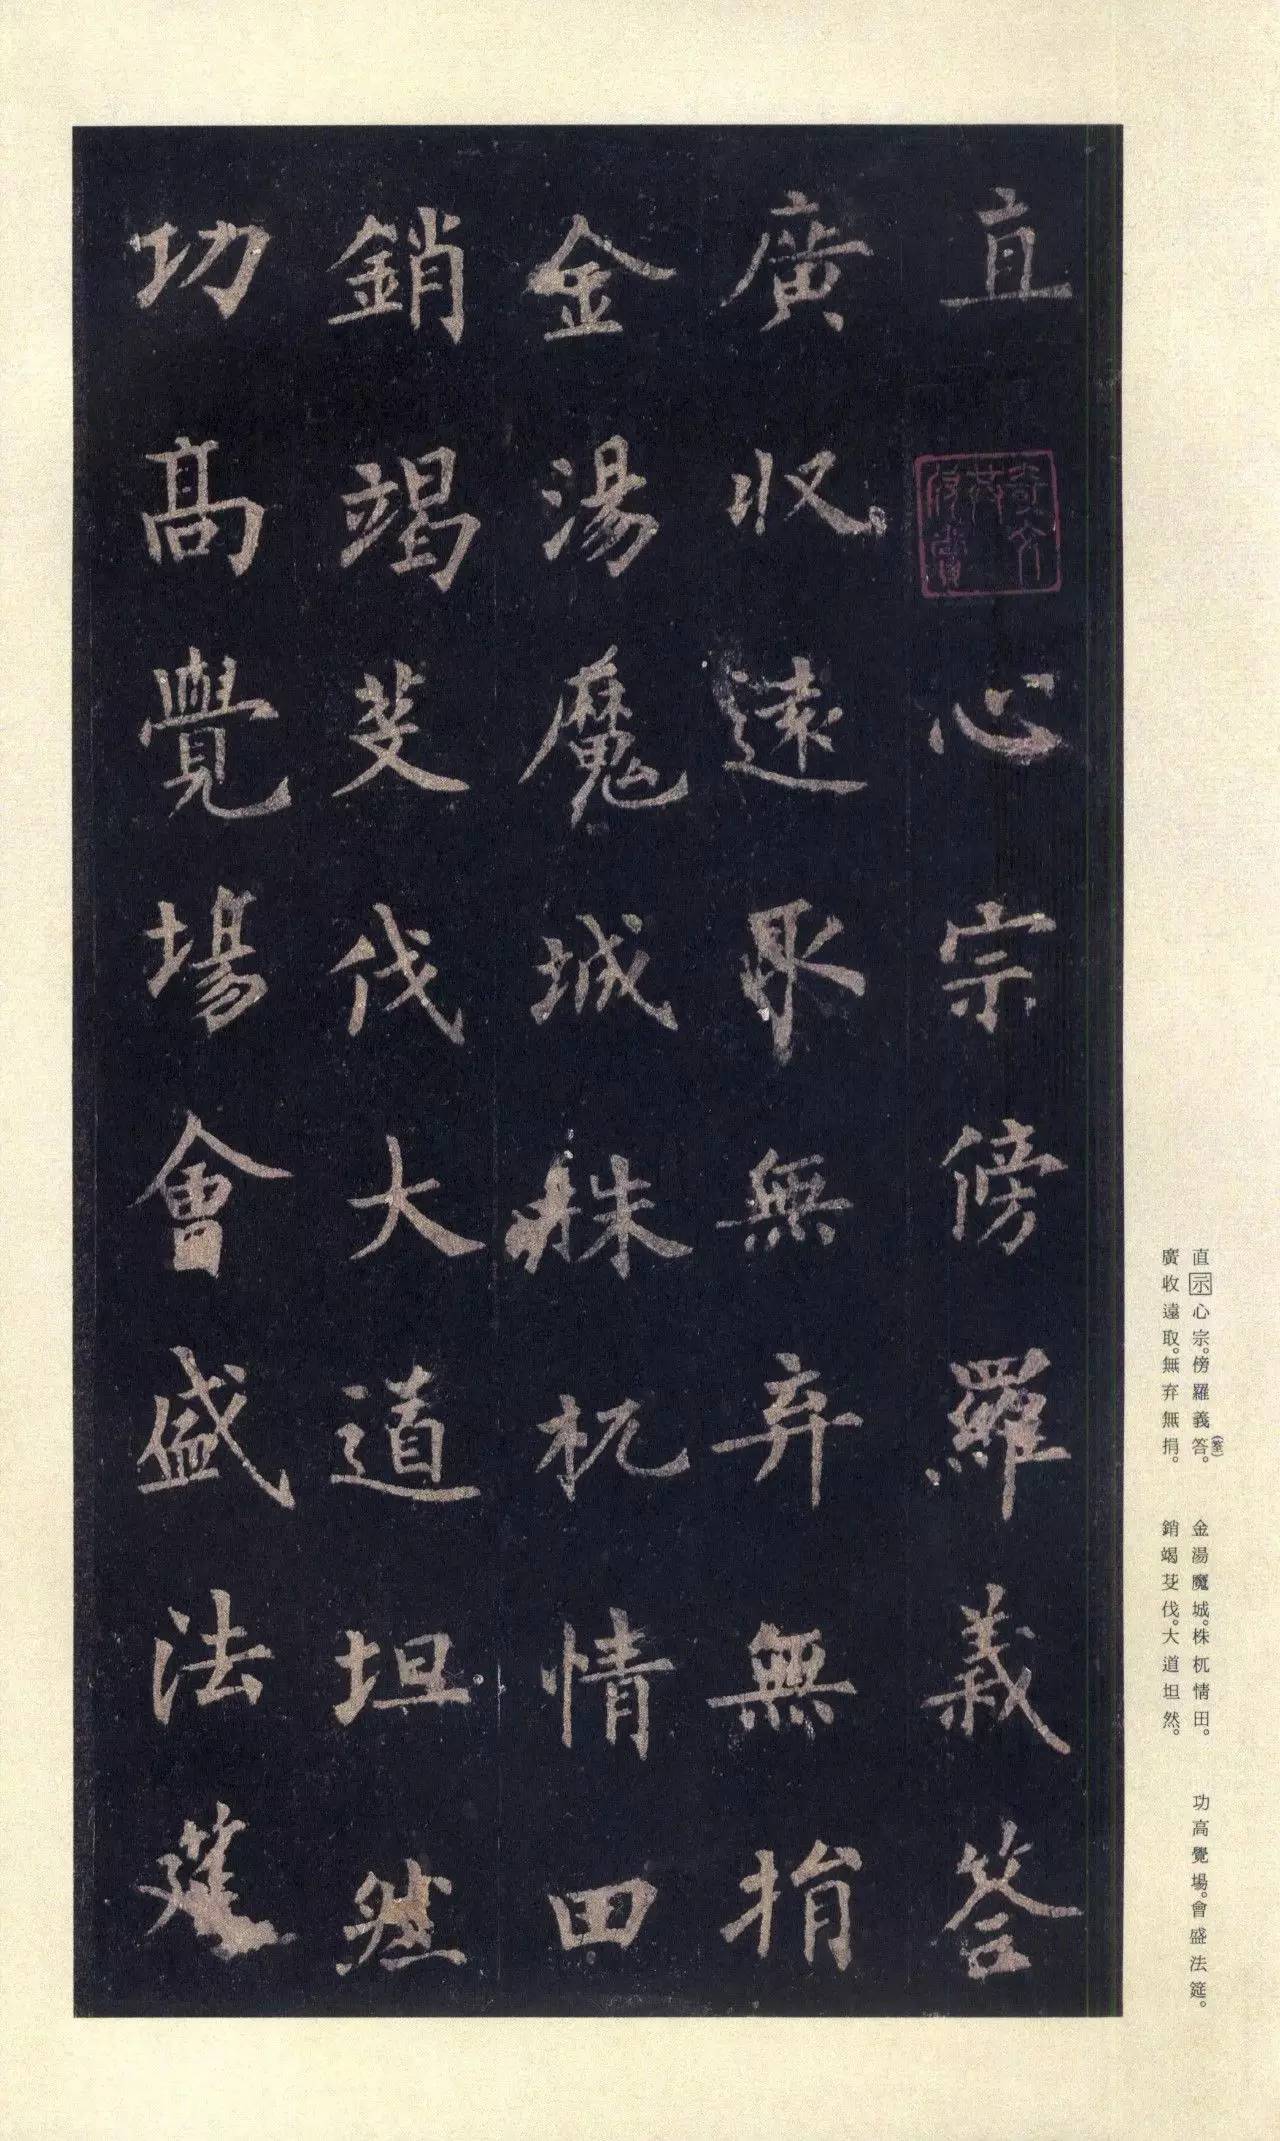 直心宗傍羅義答
奇文共欣賞
廣收遠取無弃無捐
金湯魔城株杌情田
銷竭芟伐大道坦然
功高覺場會盛法筵
直示心宗。傍羅義答(筌)。
廣收遠取。無弃無捐。
金湯魔城。株杌情田。
銷竭芟伐。大道坦然。
功高覺場。會盛法筵。